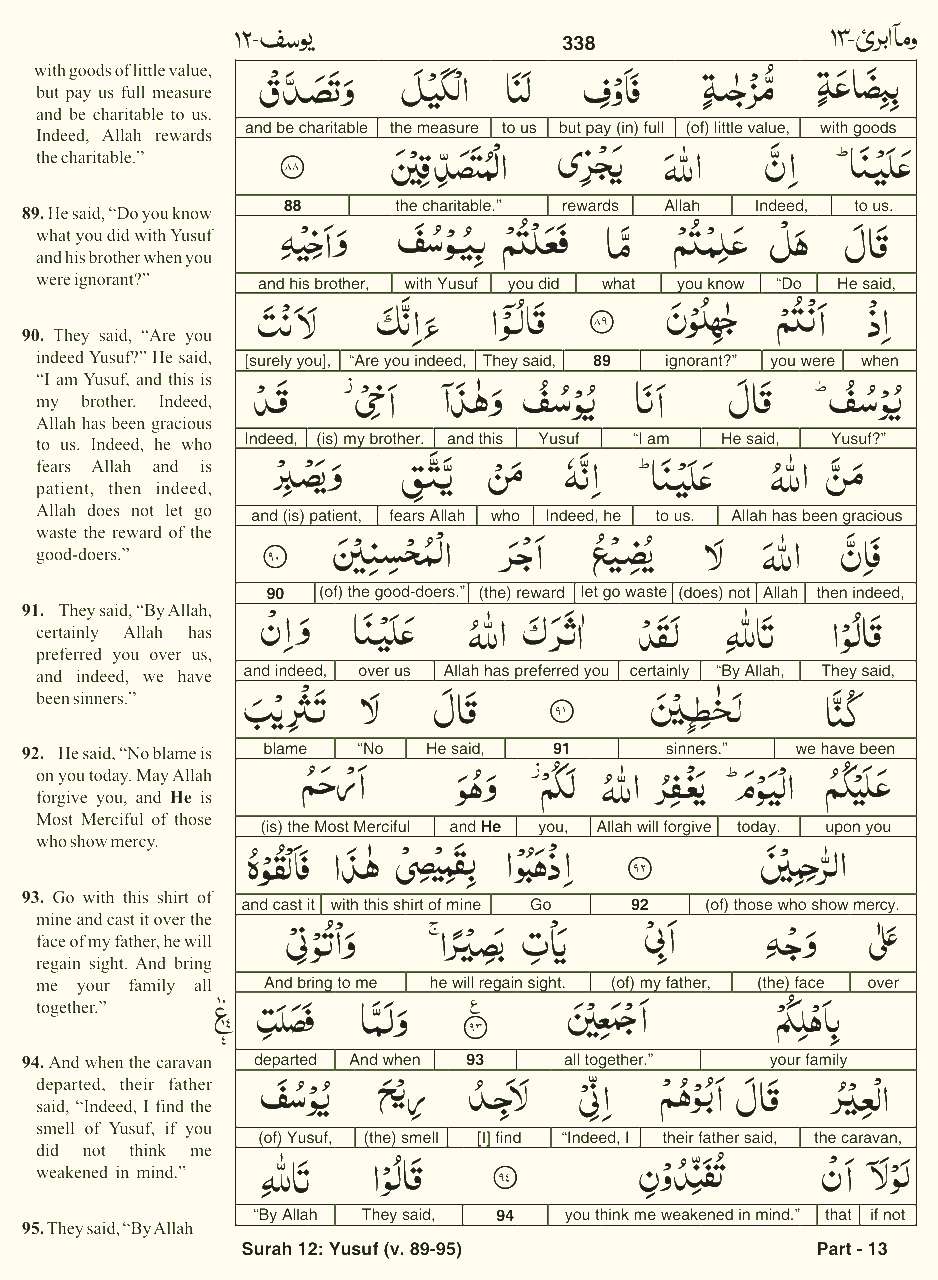 یوسف-۱۲ 338 ومآ ابرئ-۱۳
with goods of little value,
but pay us full measure
and be charitable to us.
Indeed, Allah rewards
the charitable.”
89. He said, “Do you know
what you did with Yusuf
and his brother when you
were ignorant?”
90. They said, “Are you
indeed Yusuf?” He said,
“I am Yusuf, and this is
my brother. Indeed,
Allah has been gracious
to us. Indeed, he who
fears Allah and is
patient, then indeed,
Allah does not let go
waste the reward of the
good-doers.”
91. They said, “By Allah,
certainly Allah has
preferred you over us,
and indeed, we have
been sinners.”
92. He said, “No blame is
on you today. May Allah
forgive you, and He is
Most Merciful of those
who show mercy.
93. Go with this shirt of
mine and cast it over the
face of my father, he will
regain sight. And bring
me your family all
together.”
94. And when the caravan
departed, their father
said, “Indeed, I find the
smell of Yusuf, if you
did not think me
weakened in mind.”
95. They said, “By Allah
بِبِضَاعَةٍ مُّزْجٰىةٍ فَاَوْفِ لَنَا الْكَيْلَ وَتَصَدَّقْ
and be charitable the measure to us but pay (in) full (of) little value, with goods
عَلَيْنَا ؕ اِنَّ اللّٰهَ يَجْزِى الْمُتَصَدِّقِيْنَ ۸۸
88 the charitable.” rewards Allah Indeed, to us.
قَالَ هَلْ عَلِمْتُمْ مَّا فَعَلْتُمْ بِيُوْسُفَ وَاَخِيْهِ
and his brother, with Yusuf you did what you know “Do He said,
اِذْ اَنْتُمْ جٰهِلُوْنَ ۸۹ قَالُوْٓا ءَاِنَّكَ لَاَنْتَ
[surely you], “Are you indeed, They said, 89 ignorant?” you were when
يُوْسُفُ ؕ قَالَ اَنَا يُوْسُفُ وَهٰذَآ اَخِىْ ز قَدْ
Indeed, (is) my brother. and this Yusuf “I am He said, Yusuf?”
مَنَّ اللّٰهُ عَلَيْنَا ؕ اِنَّهٗ مَنْ يَّتَّقِ وَيَصْبِرْ
and (is) patient, fears Allah who Indeed, he to us. Allah has been gracious
فَاِنَّ اللّٰهَ لَا يُضِيْعُ اَجْرَ الْمُحْسِنِيْنَ ۹۰
90 (of) the good-doers.” (the) reward let go waste (does) not Allah then indeed,
قَالُوْا تَاللّٰهِ لَقَدْ اٰثَرَكَ اللّٰهُ عَلَيْنَا وَاِنْ
and indeed, over us Allah has preferred you certainly “By Allah, They said,
كُنَّا لَخٰطِـِٕيْنَ ۹۱ قَالَ لَا تَثْرِيْبَ
blame “No He said, 91 sinners.” we have been
عَلَيْكُمُ الْيَوْمَ ؕ يَغْفِرُ اللّٰهُ لَكُمْ ز وَهُوَ اَرْحَمُ
(is) the Most Merciful and He you, Allah will forgive today. upon you
الرّٰحِمِيْنَ ۹۲ اِذْهَبُوْا بِقَمِيْصِىْ هٰذَا فَاَلْقُوْهُ
and cast it with this shirt of mine Go 92 (of) those who show mercy.
عَلٰى وَجْهِ اَبِىْ يَاْتِ بَصِيْرًا ۚ وَاْتُوْنِىْ
And bring to me he will regain sight. (of) my father, (the) face over
بِاَهْلِكُمْ اَجْمَعِيْنَ ۹۳ ع وَلَمَّا فَصَلَتِ
departed And when 93 all together.” your family
الْعِيْرُ قَالَ اَبُوْهُمْ اِنِّىْ لَاَجِدُ رِيْحَ يُوْسُفَ
(of) Yusuf, (the) smell [I] find “Indeed, I their father said, the caravan,
لَوْلَآ اَنْ تُفَنِّدُوْنِ ۹٤ قَالُوْا تَاللّٰهِ
“By Allah They said, 94 you think me weakened in mind.” that if not
Surah 12: Yusuf (v. 89-95) Part - 13